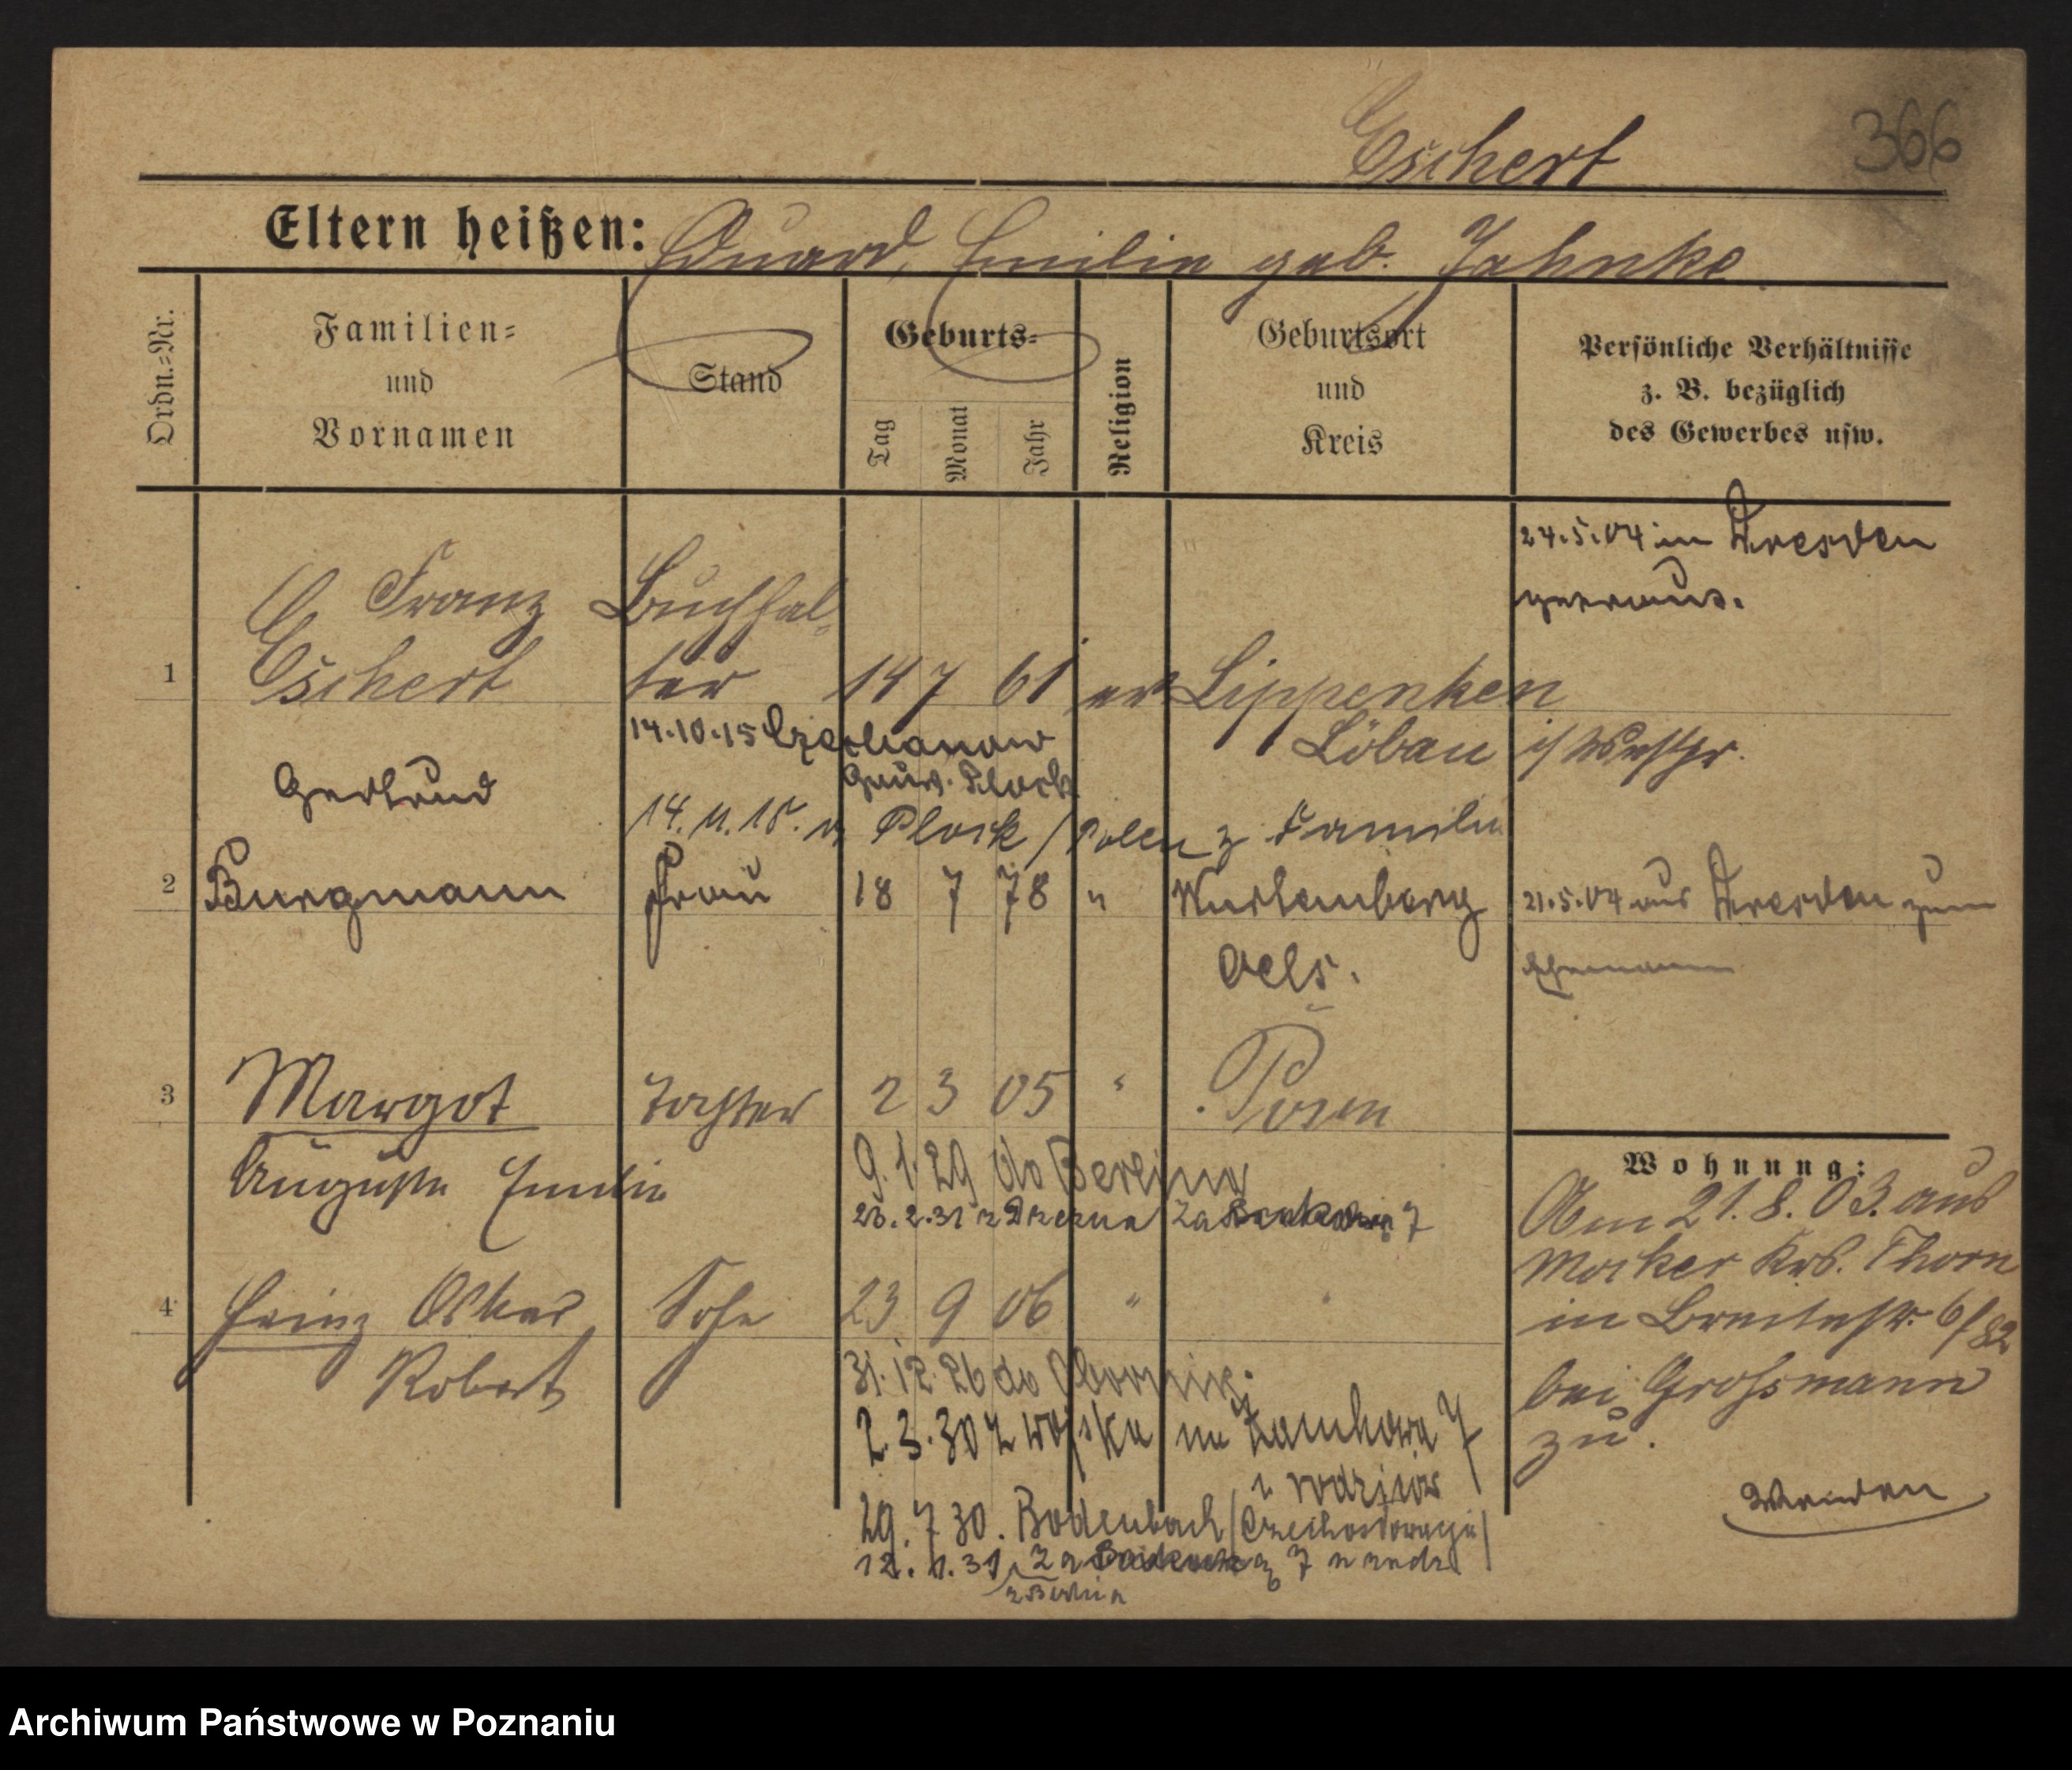 Eschert 366
Eltern heißen: Eduard, Emilie geb. Jahnke
Ordn.=Nr.
Familien=
und
Vornamen
Stand
Geburts=
Tag
Monat
Jahr
Religion
Geburtsort
und
Kreis
Persönliche Verhältnisse
z. B. bezüglich
des Gewerbes usw.
24.5.04 in Dresden
getraut.
Franz Buchhal-
1 Eschert ter 14 7 61 ev Lippenken
14.10.15
Löbau i/ Westpr.
Gertrud
Gouv. Plock
14.11.15. n. Plock / Polen z Familie
2 Burgmann Frau 18 7 78 " 21.5.04 aus Dresden zum
Oels. Ehemann
3 Margot Tochter 2 3 05 " Posen
Auguste Emilie
9.1.29 do Berlina
23.2.31 z Drezna Za Bramką 7
4 Heinz Oskar Sohn 23 9 06 " "
Robert
31.12.26 do Obornik.
2.3.30 z wojska na Zamkowa 7
29.7.30. Bodenbach /Czechosłowacja/
12.1.31 Za Bramką 7
z Berlina
Wohnung:
Am 21.8.03. aus
Mocker Krs. Thorn
in Breitestr. 6/
bei Grossmann
zu.